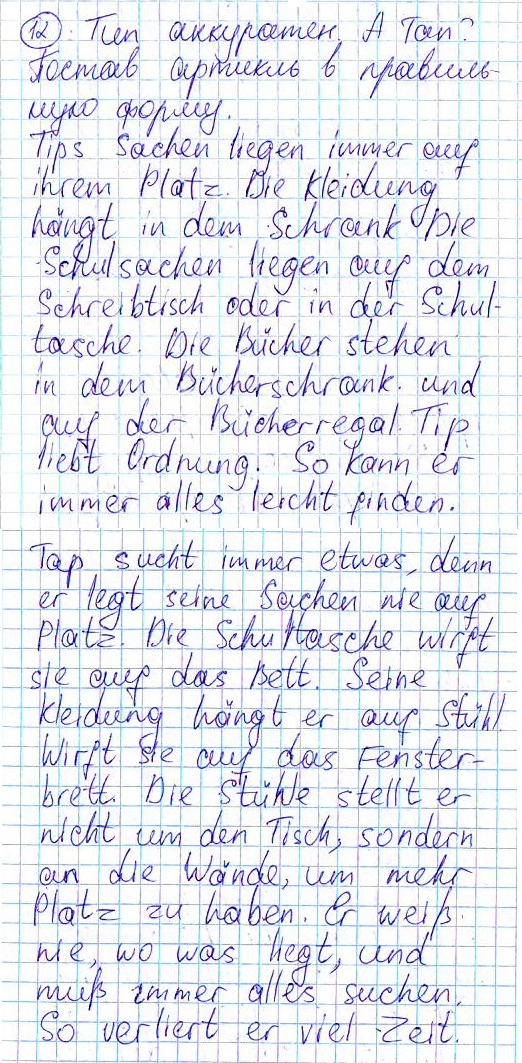 12. Тип аккуратен. А Тап?
Поставь артикль в правиль-
ную форму.
Tips Sachen liegen immer auf
ihrem Platz. Die Kleidung
hängt in dem Schrank. Die
Schulsachen liegen auf dem
Schreibtisch oder in der Schul-
tasche. Die Bücher stehen
in dem Bücherschrank. und
auf der Bücherregal. Tip
liebt Ordnung. So kann er
immer alles leicht finden.
Tap sucht immer etwas, denn
er legt seine Sachen nie auf
Platz. Die Schultasche wirft
sie auf das Bett. Seine
Kleidung hängt er auf Stühl.
Wirft sie auf das Fenster-
brett. Die Stühle stellt er
nicht um den Tisch, sondern
an die Wände, um mehr
Platz zu haben. Er weiß
nie, wo was liegt, und
muß immer alles suchen.
So verliert er viel Zeit.